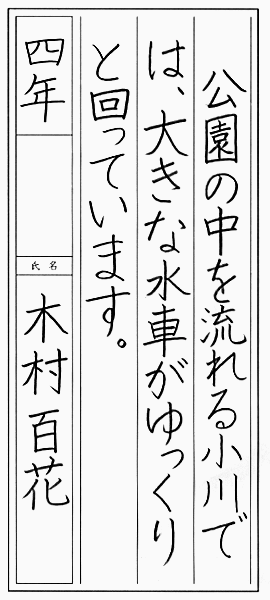 公園の中を流れる小川で
は、大きな水車がゆっくり
と回っています。
四年
氏名
木村百花